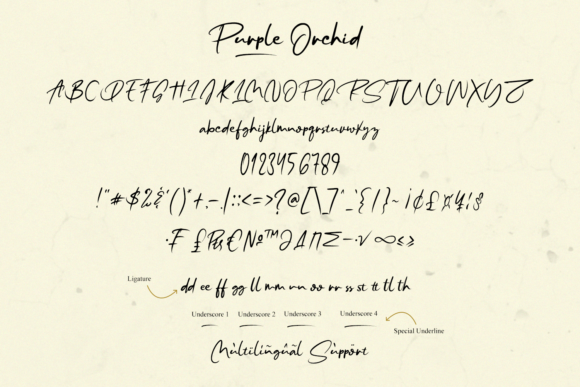 Purple Orchid
ABCDEFGHIJKLMNOPQRSTUVWXYZ
abcdefghijklmnopqrstuvwxyz
0123456789
!"#$%&'()*+,-./:;<=>?@[\]^_`{|}~¡¢£¤¥¦§
·₣₤₧€№™∂∆∏∑−√∞≤≥
Ligature
dd ee ff gg ll mm nn oo rr ss st tt tl th
Underscore 1 Underscore 2 Underscore 3 Underscore 4
Special Underline
Mùltilíñgûãl Sùppört